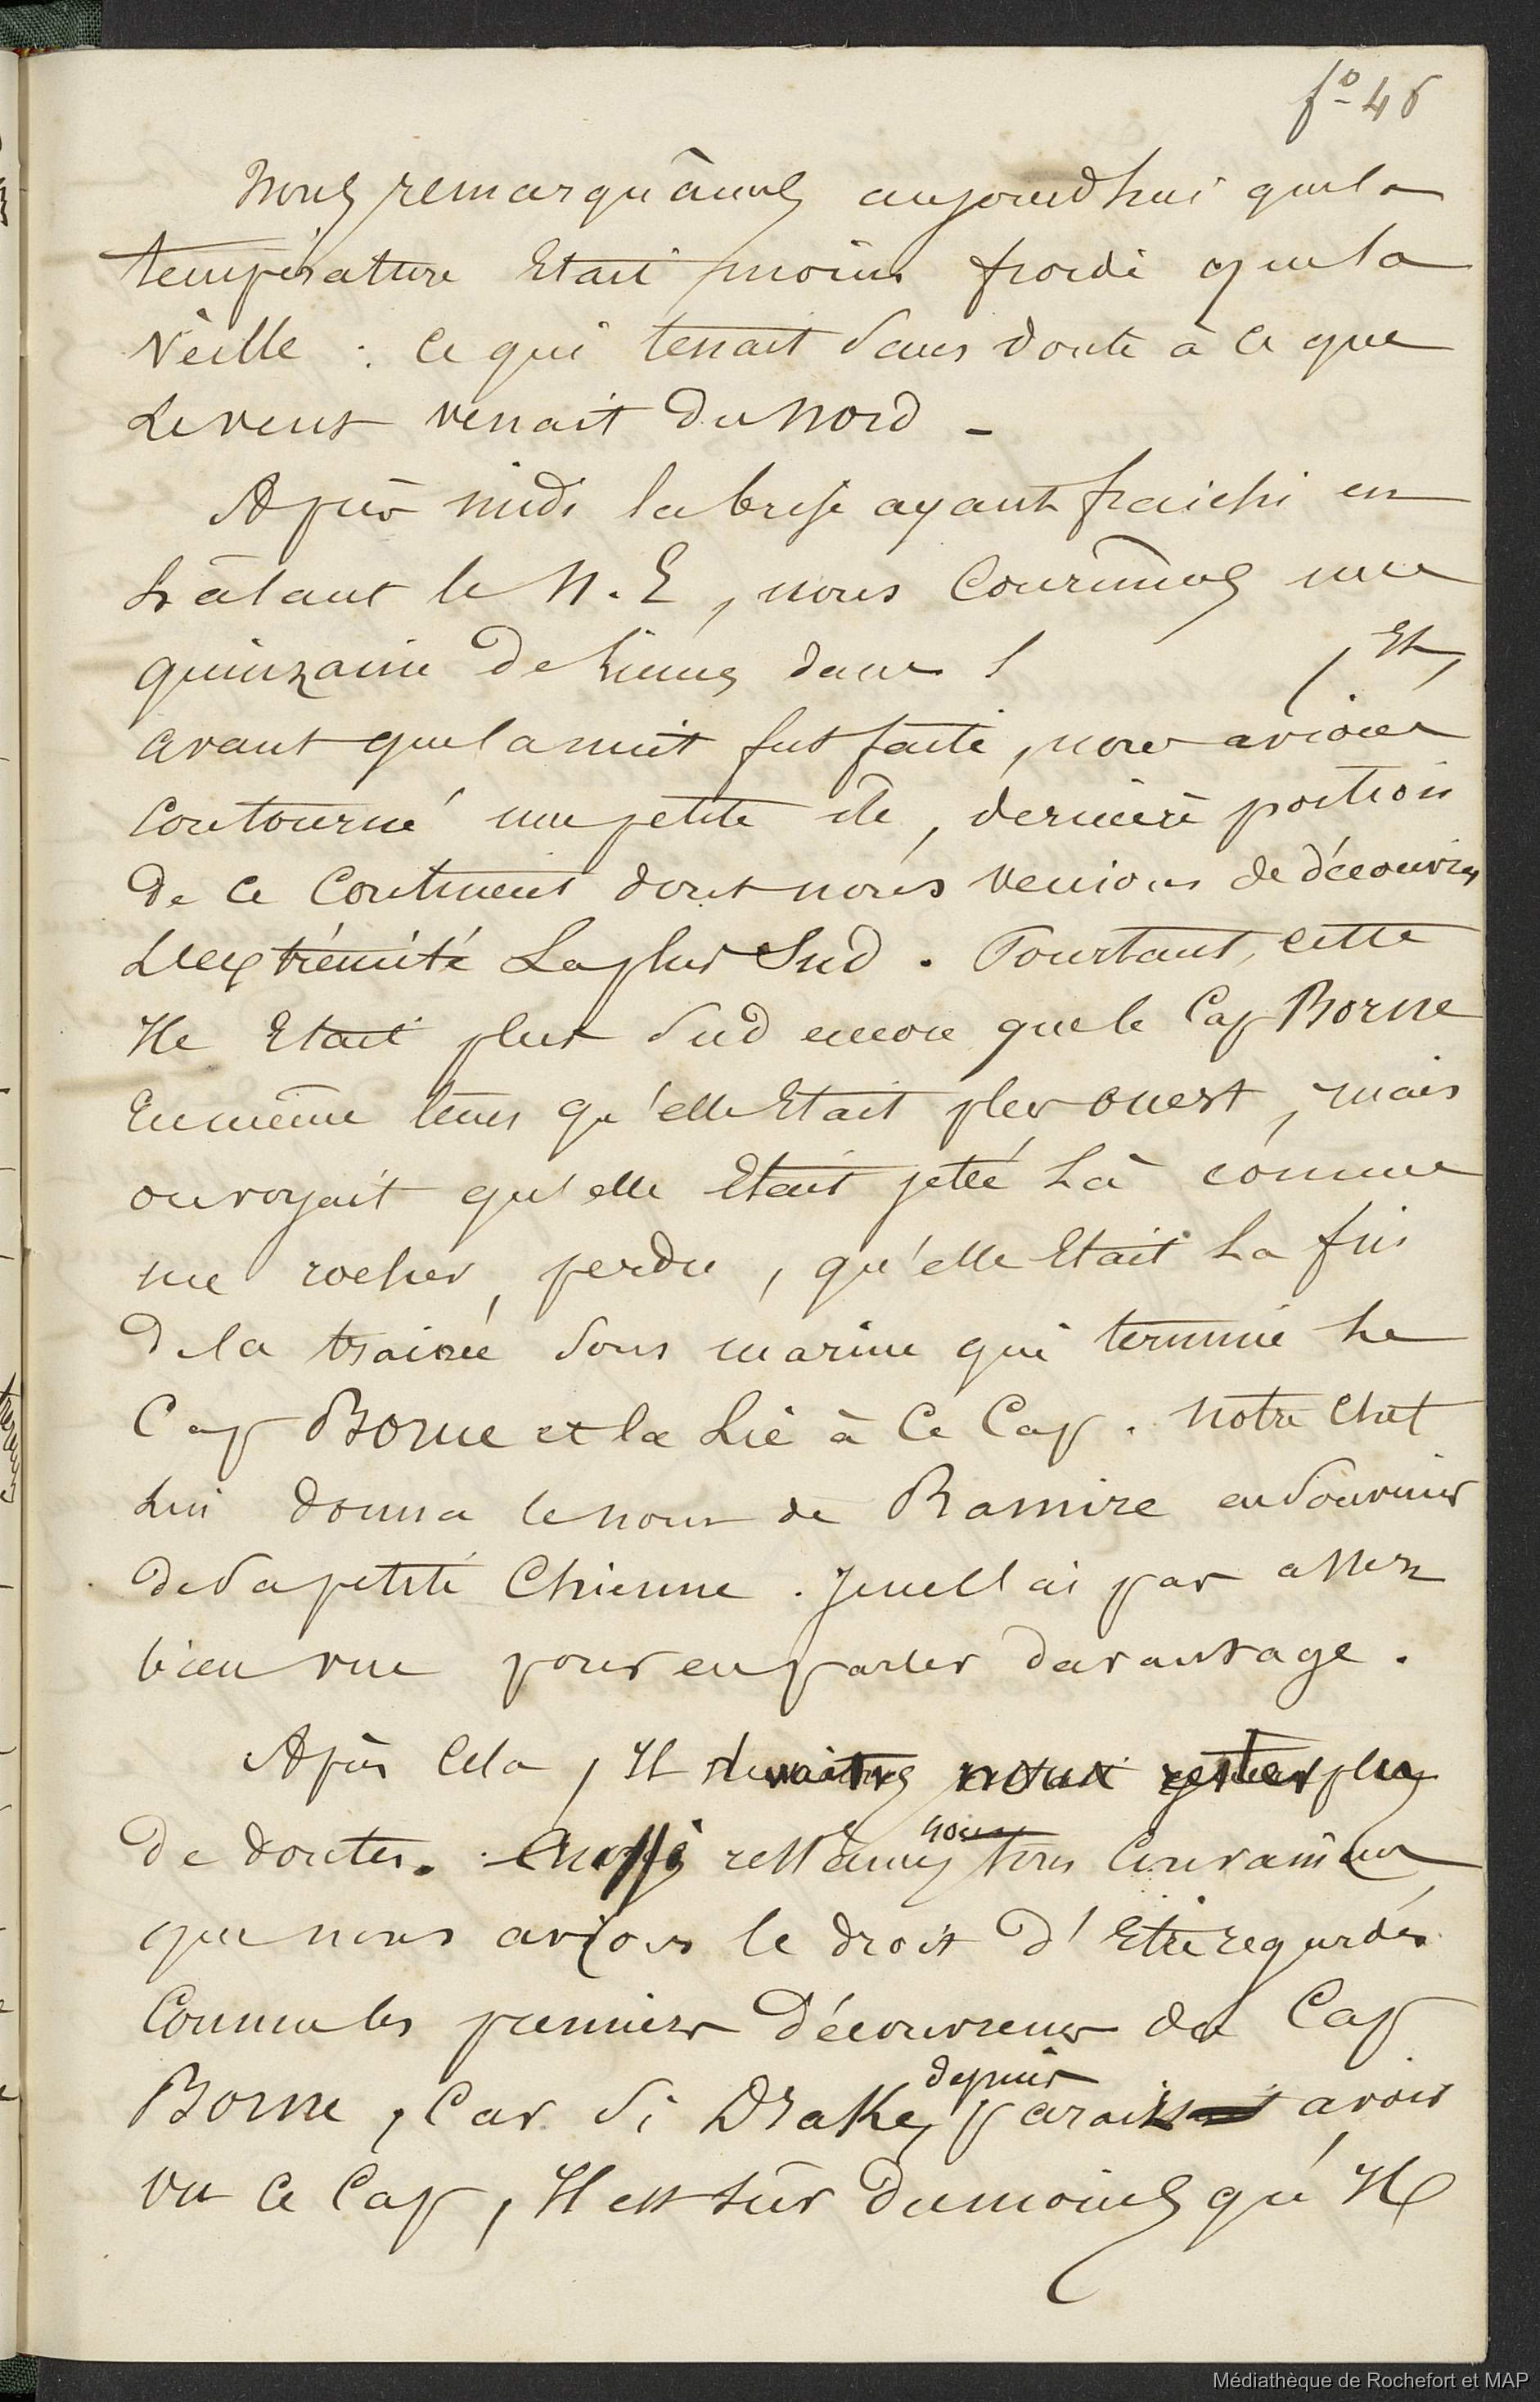 fo 46
Nous remarquâmes aujourdhui que la
température Etait moins froide que la
veille : ce qui tenait sans doute à ce que
Le vent venait du Nord -
Après midi la brise ayant fraichi en
hâlant le N. E, nous Courûmes une
quinzaine De Lieues dans l Et,
avant que la nuit fut faite, nous avions
Contourné une petite ile, dernière portion
De ce Continent dont nous venions de découvrir
L'extrémité La plus Sud. Pourtant, cette
Ile Etait plus Sud encore que le Cap Borne
En même tems qu'elle Etait plus ouest, mais
on voyait qu'elle Etait jetée Là comme
un rocher perdu, qu'elle Etait La fin
De la trainée Sous marine qui termine Le
Cap Borne et la Lie à Ce Cap. Notre Chef
Lui donna le nom de Ramire en Souvenir
De Sa petite Chienne. Je ne l'ai pas assez
bien vue pour en parler davantage.
Après Cela, Il devait nous rester plus
De doutes. Aussi restâmes nous tous Convaincus
que nous avions le droit d'Etre regardés
Comme les premiers Découvreurs du Cap
Borne, Car Si Drake, depuis parait avoir
vu Ce Cap, Il est sûr Du moins qu'Il
Médiathèque de Rochefort et MAP